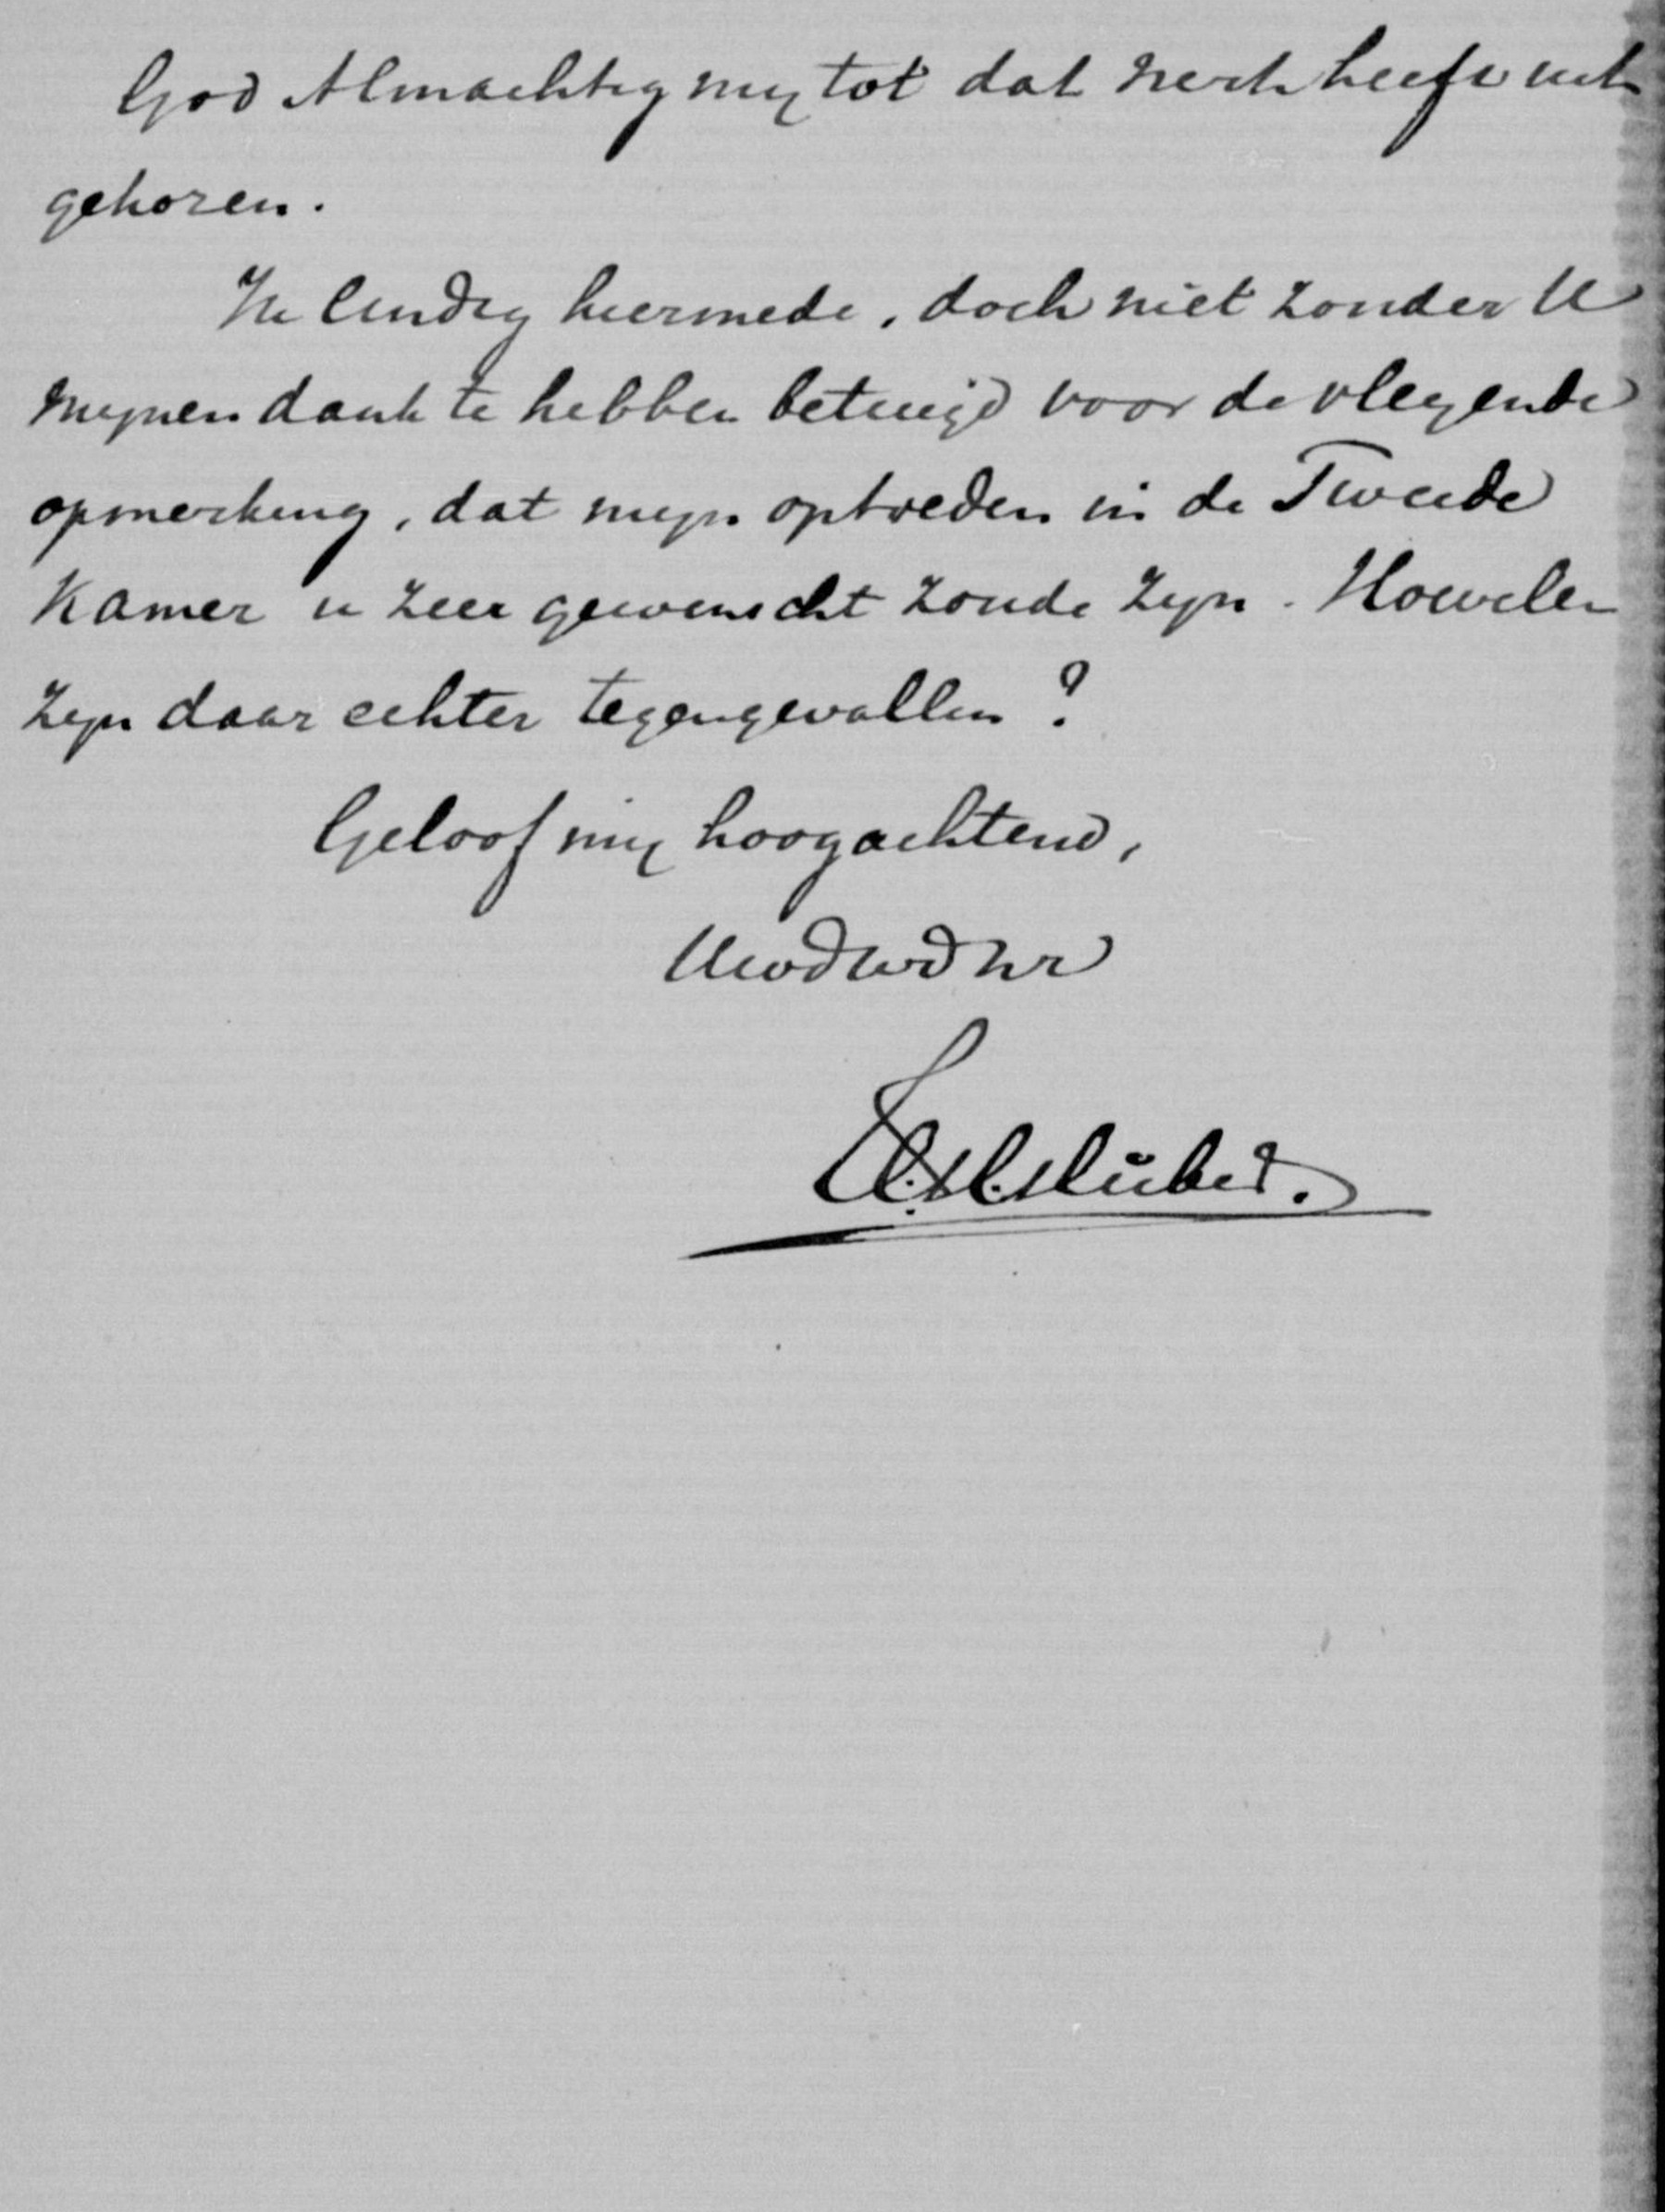 God Almachtig my tot dat werk heeft uit
gekozen.
Ik eindig hiermede, doch niet zonder U
mynen dank te hebben betuigd voor de vleyende
opmerking, dat myn optreden in de Tweede
Kamer u zeer gewenscht zoude zyn. Hoevelen
zyn daar echter tegengevallen?
Geloof my hoogachtend,
Uwdwdnr